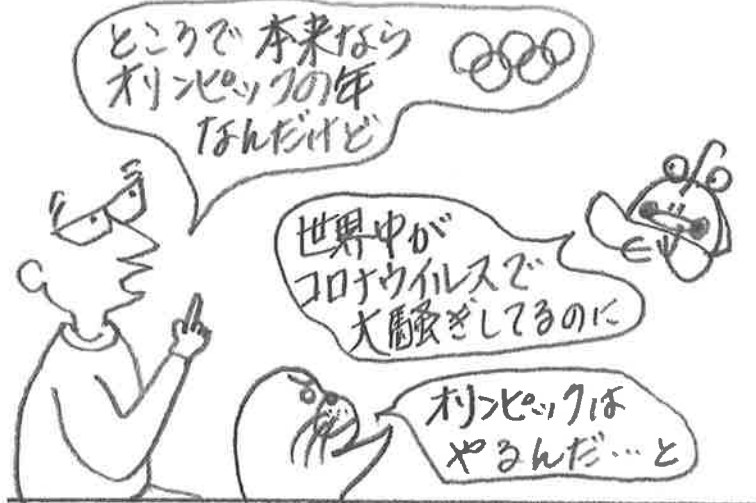 ところで本来なら
オリンピックの年
なんだけど
世界中が
コロナウイルスで
大騒ぎしてるのに
オリンピックは
やるんだ…と